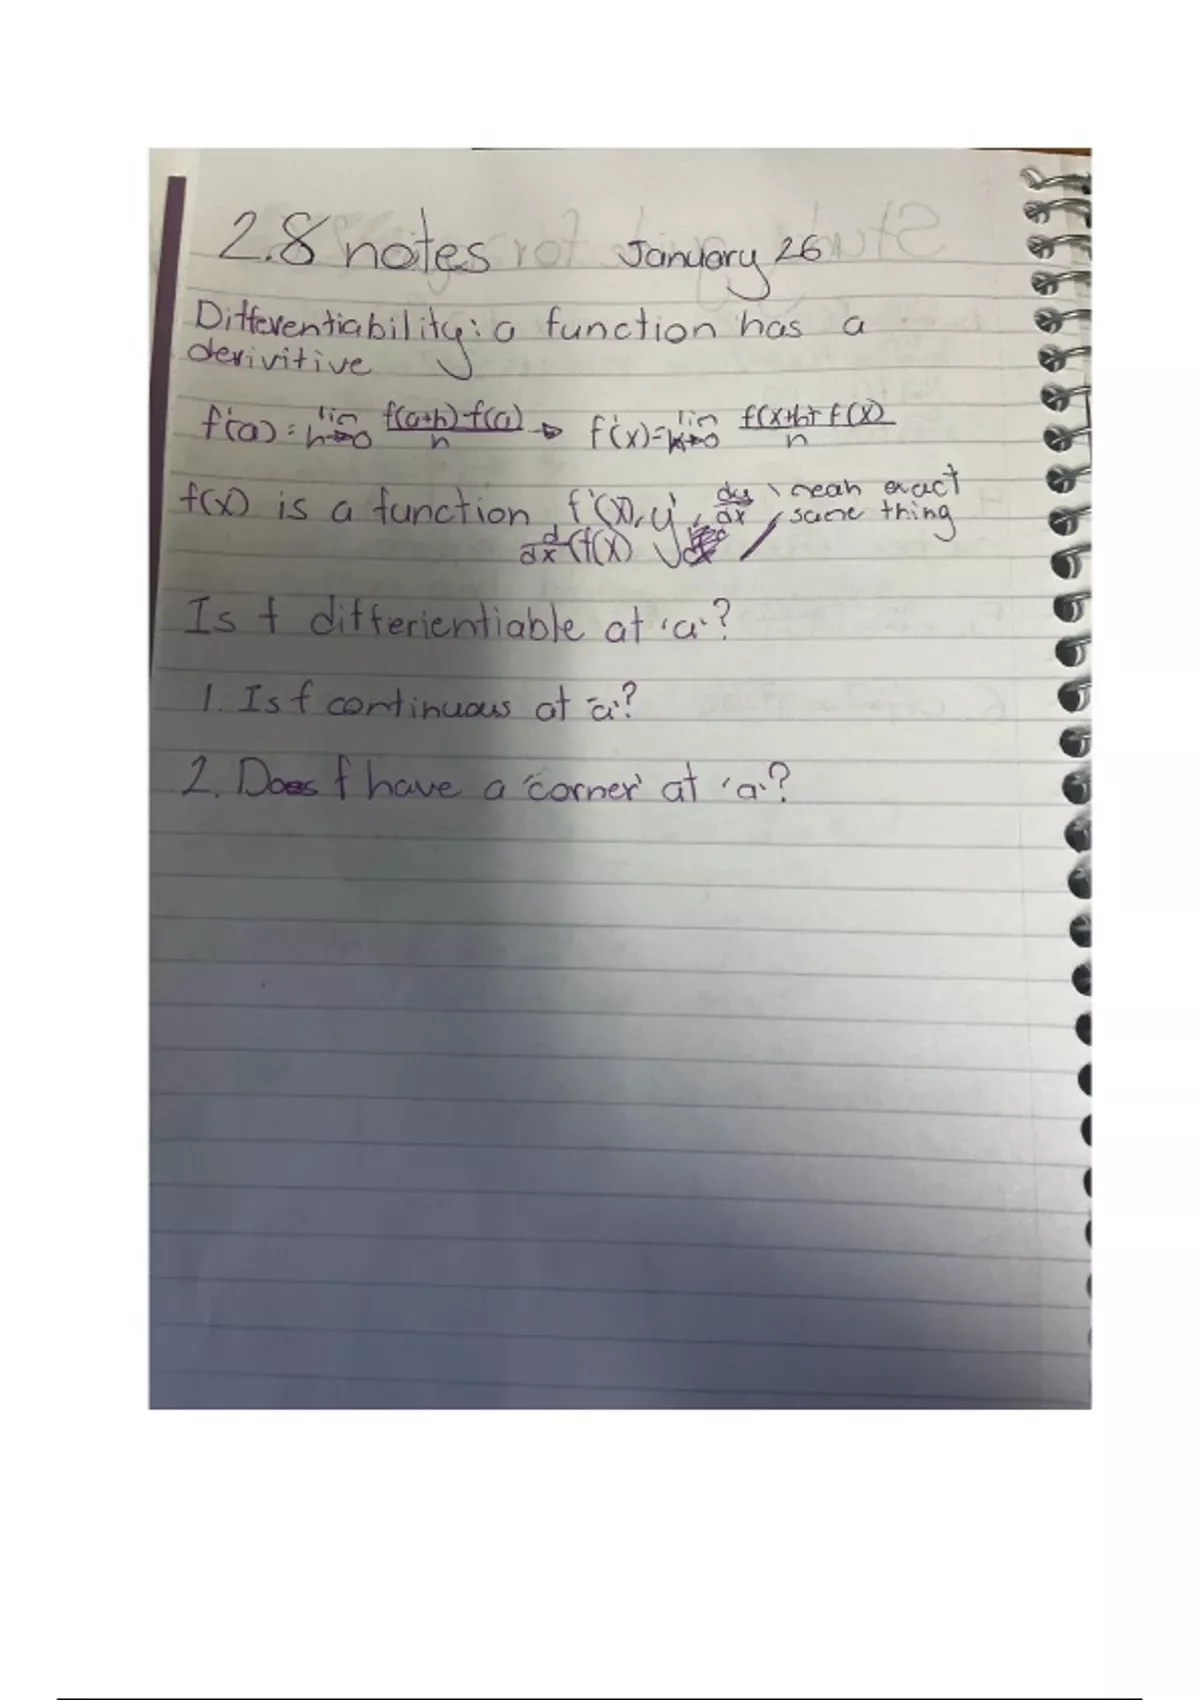 2.8 notes January 26
Differentiability: a function has a
derivitive
f'(a) = lim h→0 f(a+h)-f(a) / h → f'(x) = lim h→0 f(x+h)-f(x) / h
f(x) is a function f'(x), y', dy/dx, mean exact
same thing
d/dx (f(x)
Is f differientiable at 'a'?
1. Is f continuous at 'a'?
2. Does f have a 'corner' at 'a'?